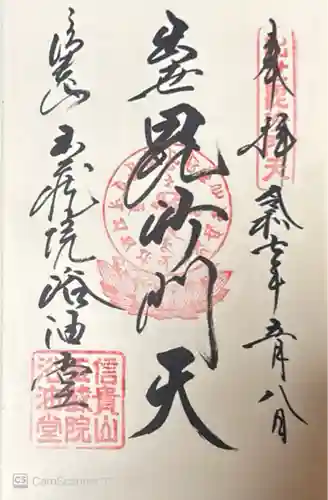 奉拝 令和七年五月八日
出世毘沙門天
信貴山
玉蔵院浴油堂
信貴山
玉蔵院
浴油堂
CS CamScanner